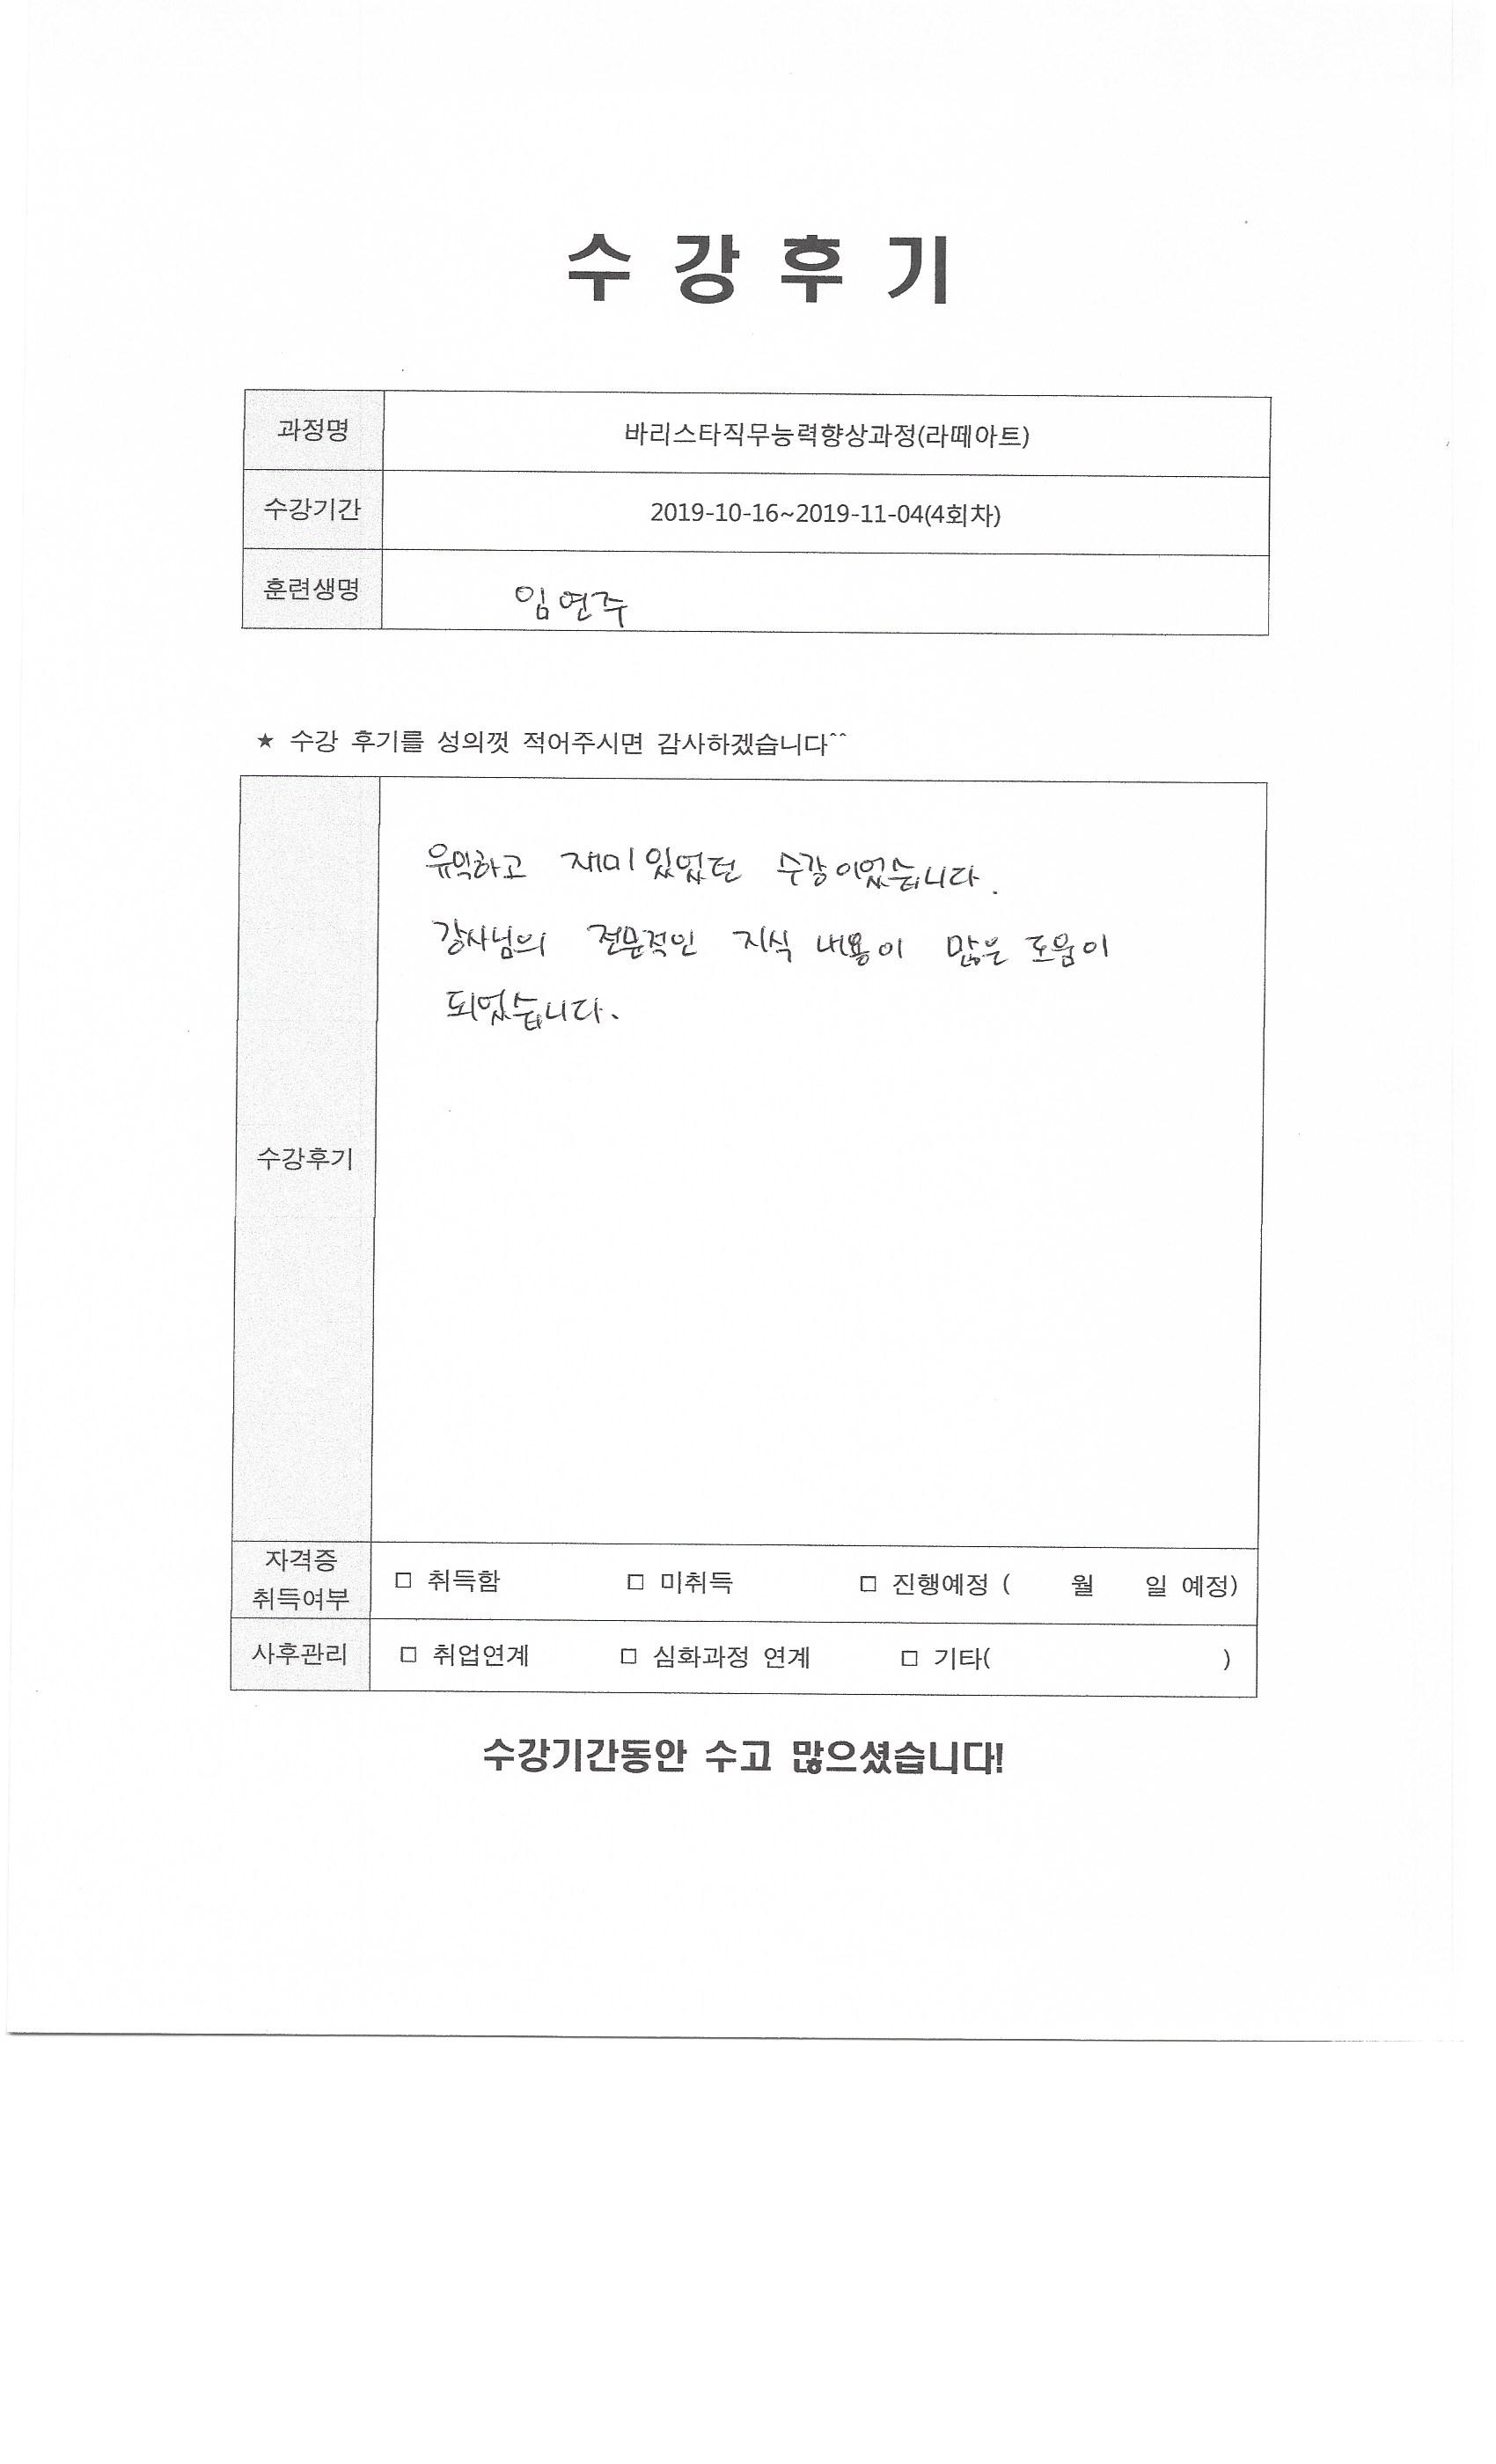 수 강 후 기
과정명 바리스타직무능력향상과정(라떼아트)
수강기간 2019-10-16~2019-11-04(4회차)
훈련생명 임연주
★ 수강 후기를 성의껏 적어주시면 감사하겠습니다^^
유익하고 재미있었던 수강이었습니다.
강사님의 전문적인 지식 내용이 많은 도움이
되었습니다.
수강후기
자격증
취득여부 □ 취득함 □ 미취득 □ 진행예정 ( 월 일 예정)
사후관리 □ 취업연계 □ 심화과정 연계 □ 기타( )
수강기간동안 수고 많으셨습니다!